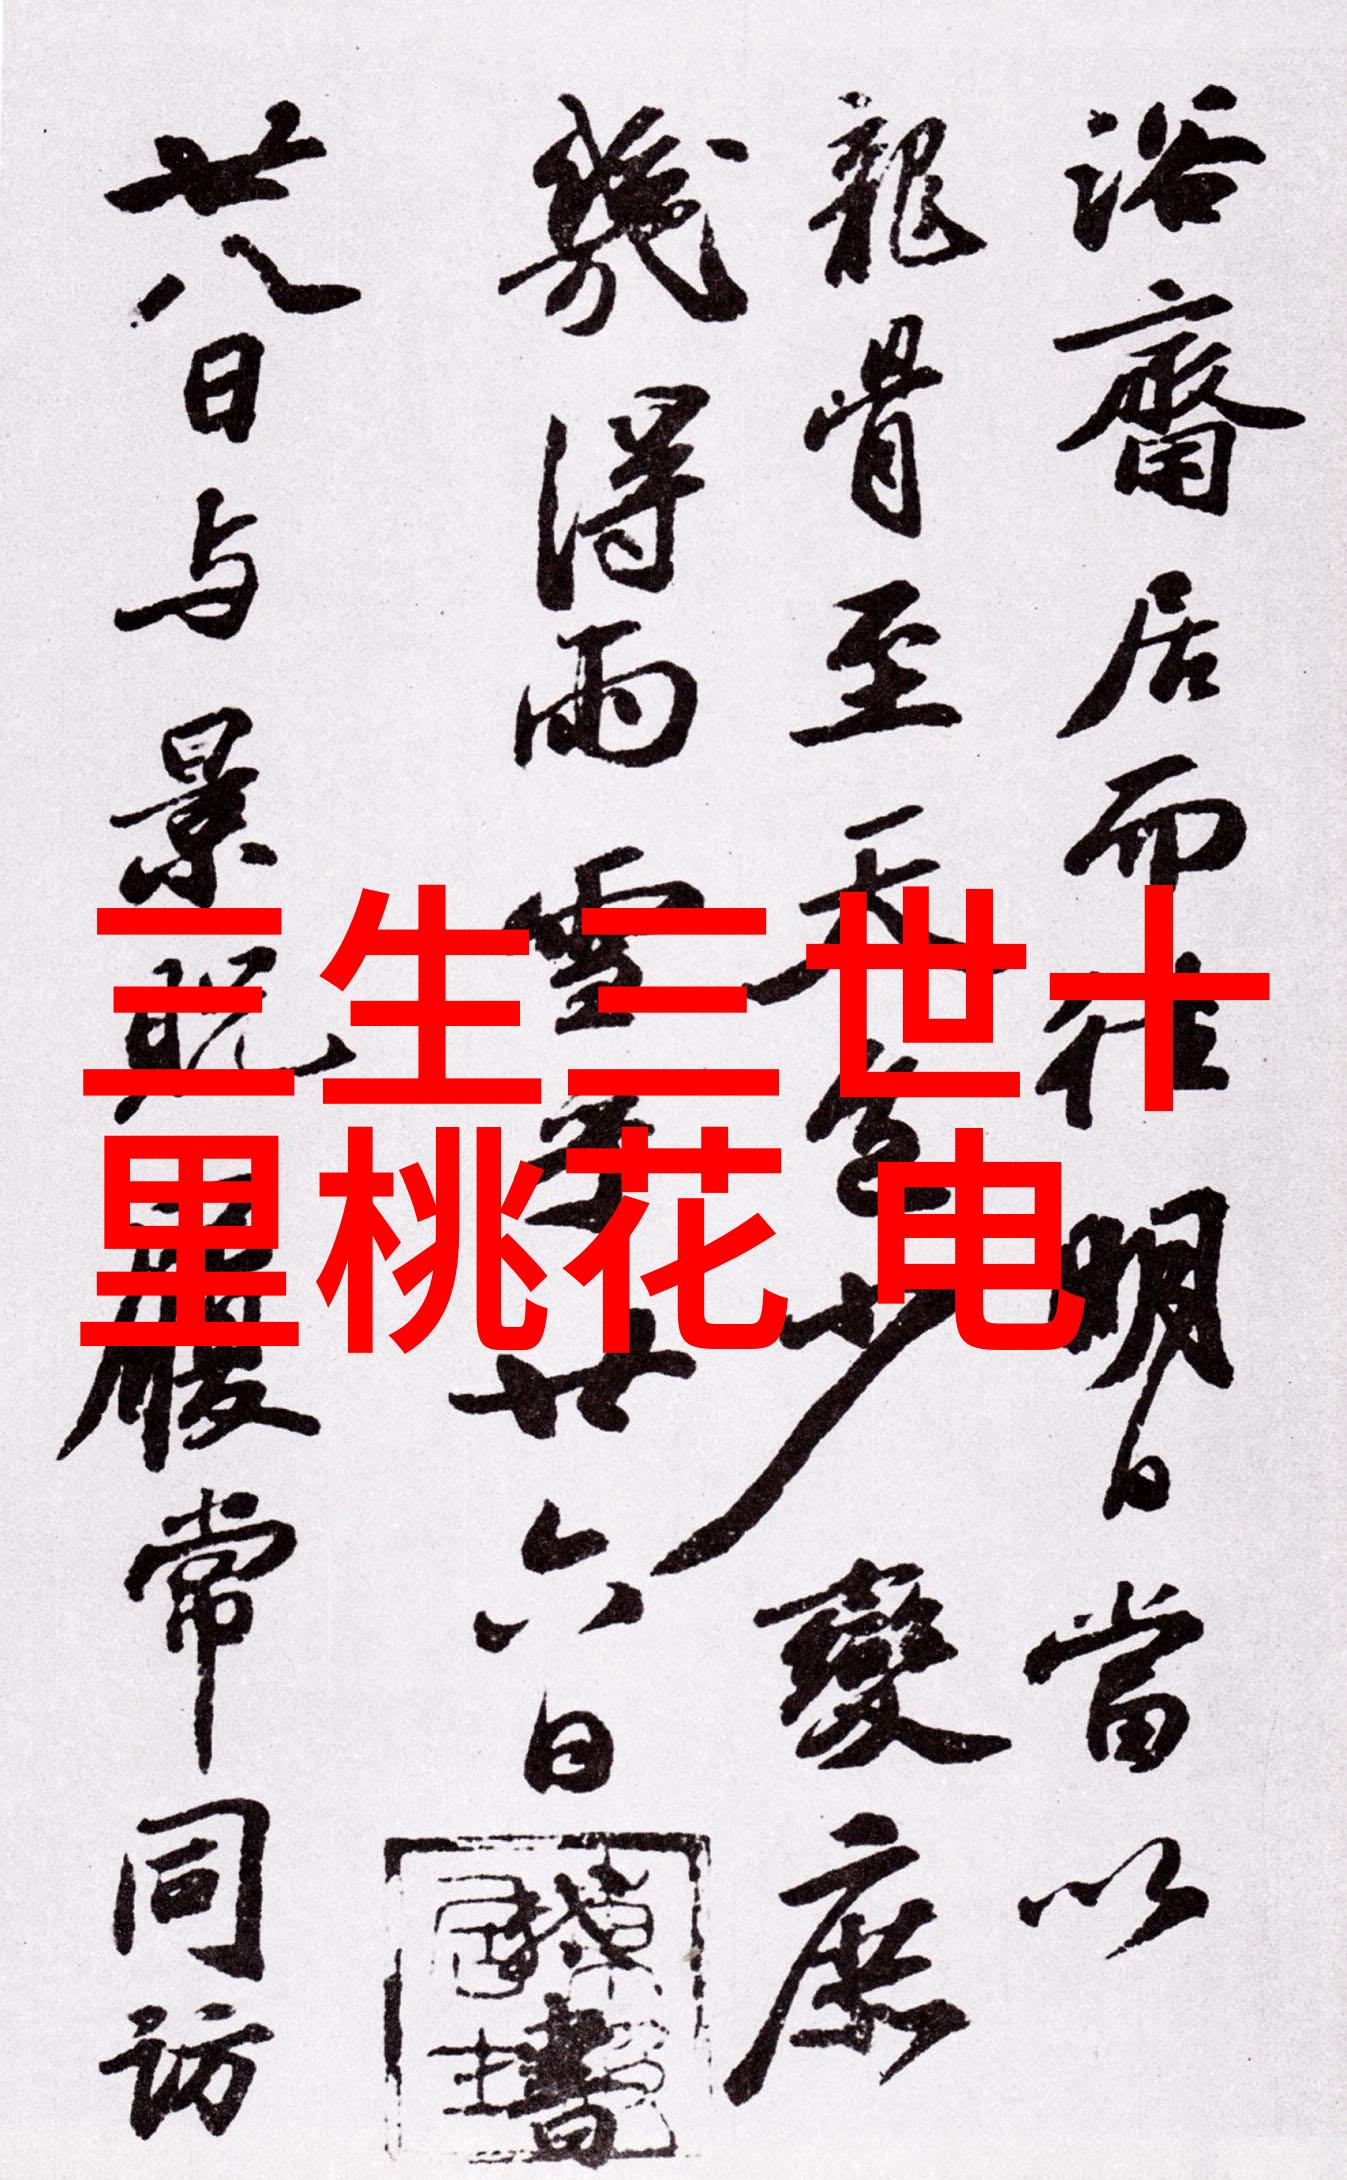 三生三世十
里桃花 电
浴齋居而往明日當以
龍骨至天慶少變庶
幾得雨雪乎廿六日
書
廿八日与景貺履常同訪